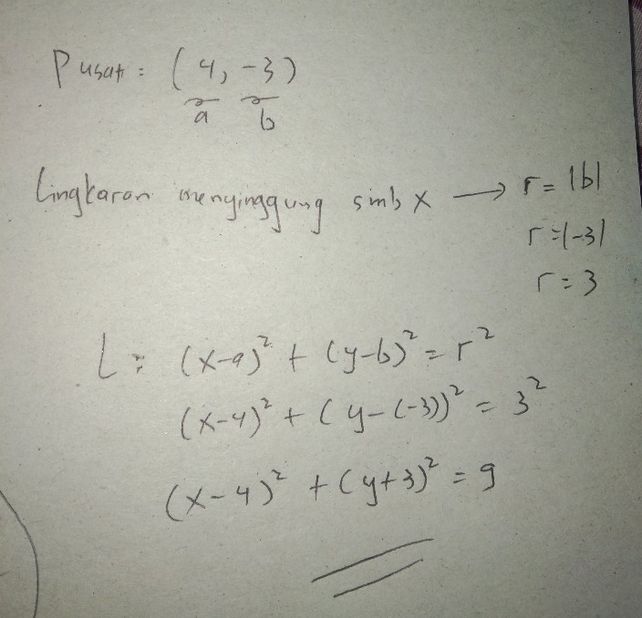 Pusat = (4, -3)
a b
Lingkaran menyinggung smb x → r = |b|
r = |-3|
r = 3
L = (x-a)² + (y-b)² = r²
(x-4)² + (y-(-3))² = 3²
(x-4)² + (y+3)² = 9